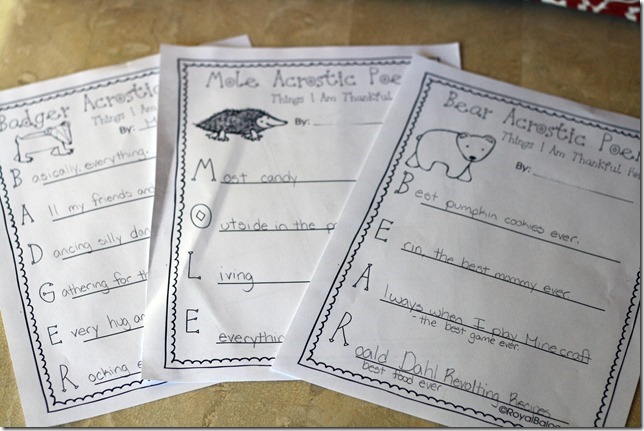 Badger Acrostic
Things I Am
By:
Basically, everything.
All my friends and
Dancing silly
Gathering for
Every hug
Rocking
Mole Acrostic
Things I Am Thankful
By:
Most candy
Outside in the
Living
Everything
Bear Acrostic
Things I Am Thankful
By:
Best pumpkin cookies ever.
Erin, the best mommy ever.
Always when I play Minecraft
- the best game ever.
Roald Dahl Revolting Recipes
best food ever